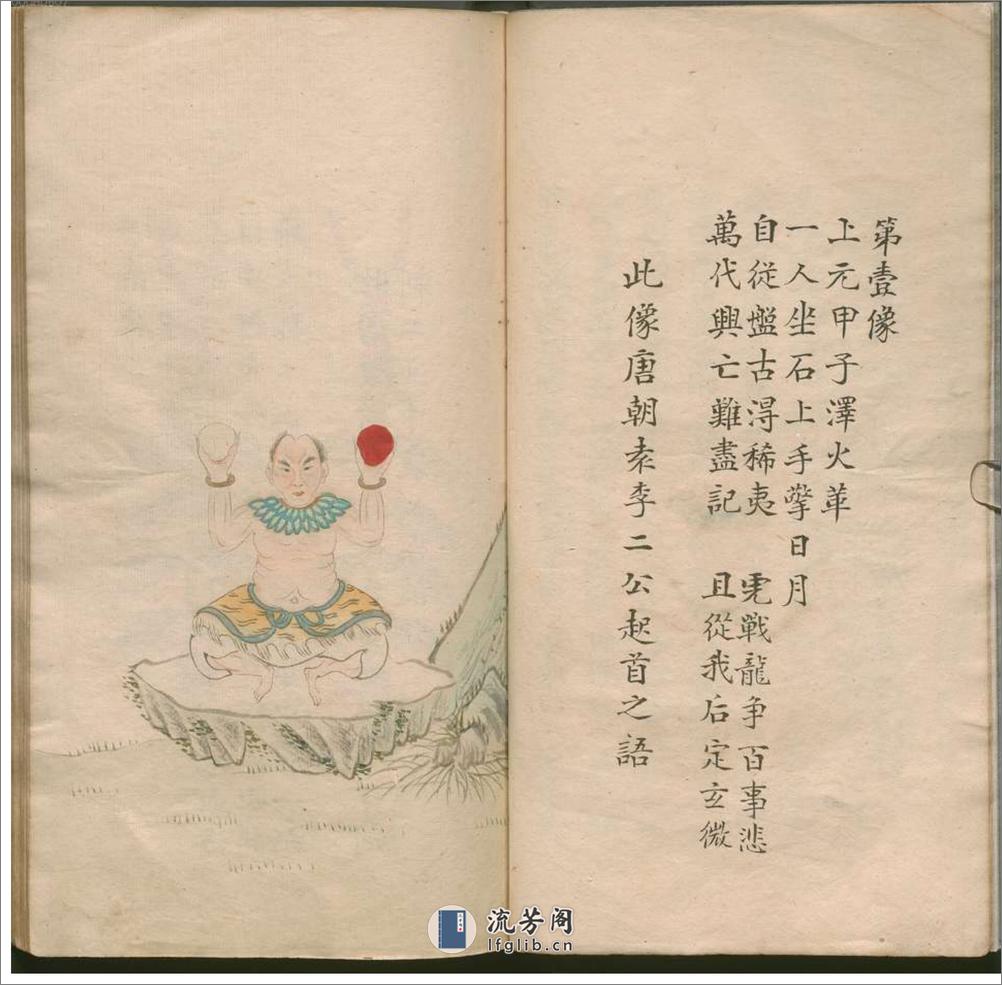 第壹像
上元甲子澤火革
一人坐石上手擎日月
自從盤古得稀夷　虎戰龍爭百事悲
萬代興亡難盡記　且從我后定玄微
此像唐朝袁李二公起首之語
流芳阁
lfglib.cn